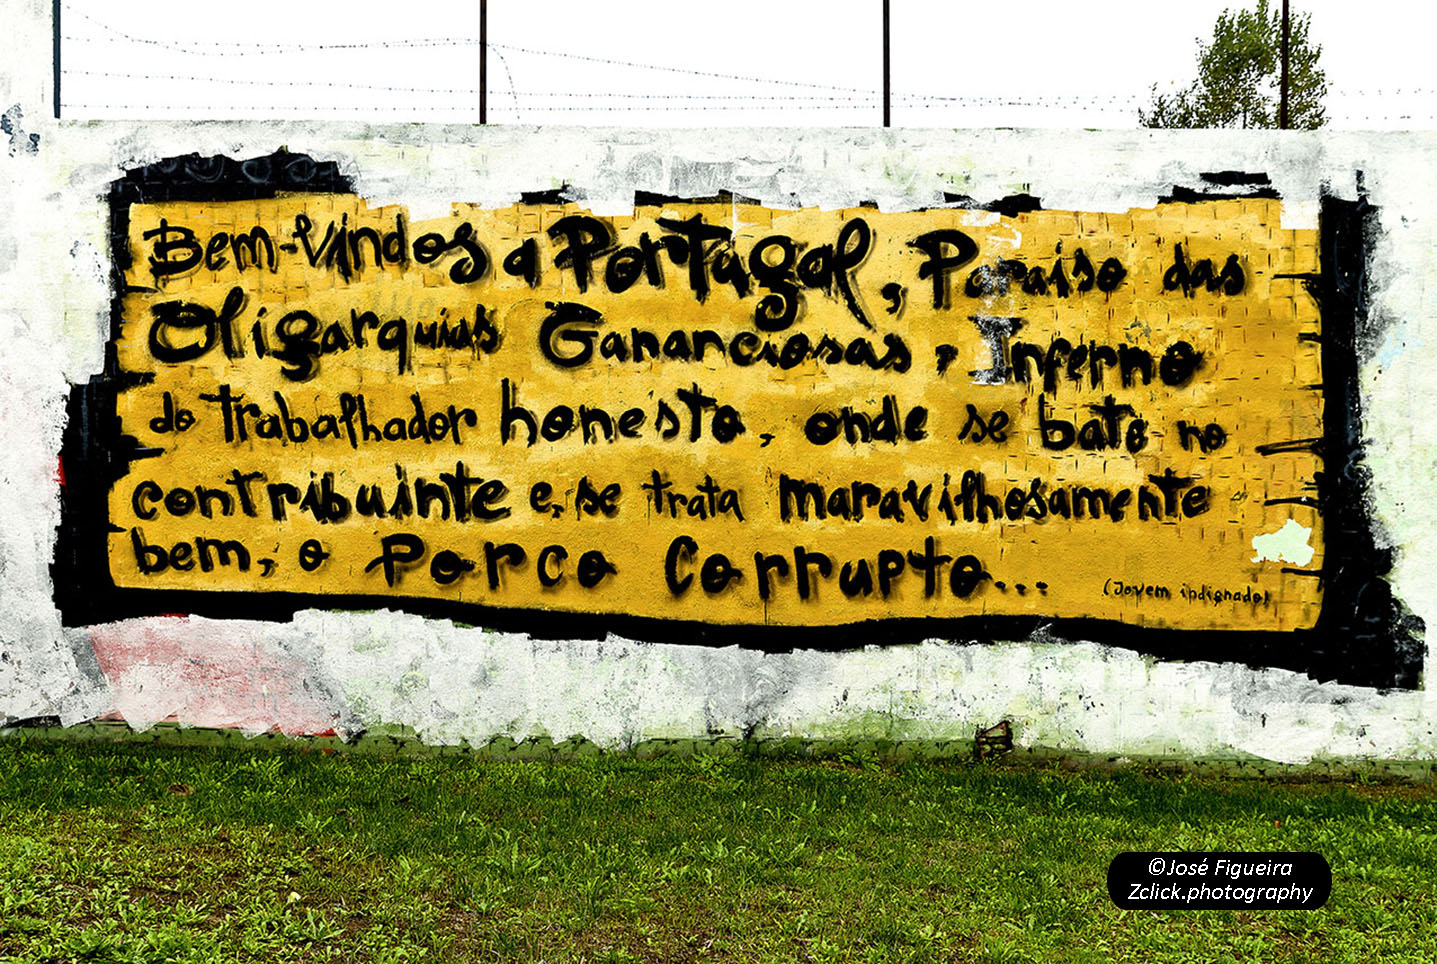 Bem-Vindos a Portugal, Paraíso das
Oligarquias Gananciosas, Inferno
do trabalhador honesto, onde se bate no
contribuinte e, se trata maravilhosamente
bem, o Porco Corrupto...
(Jovem indignado)
©José Figueira
Zclick.photography